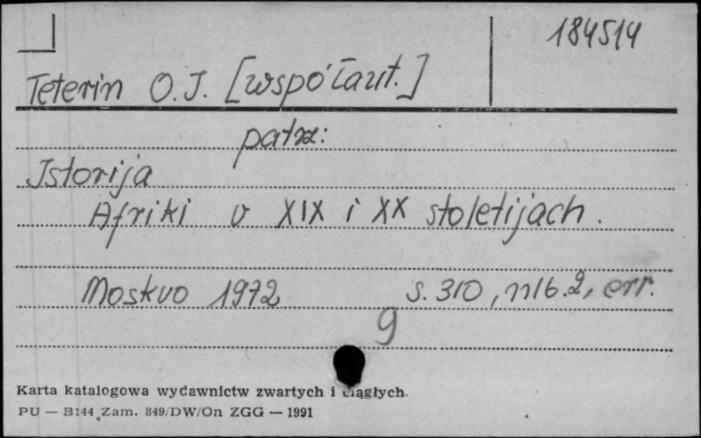 184514
Teterin O.J. [współaut.]
patrz:
Istorija
Afriki v XIX i XX stoletijach.
Moskvo 1972 s. 310, nlb. 2, err.
9
Karta katalogowa wydawnictw zwartych i ciągłych.
PU — B144 Zam. 849/DW/On ZGG — 1991